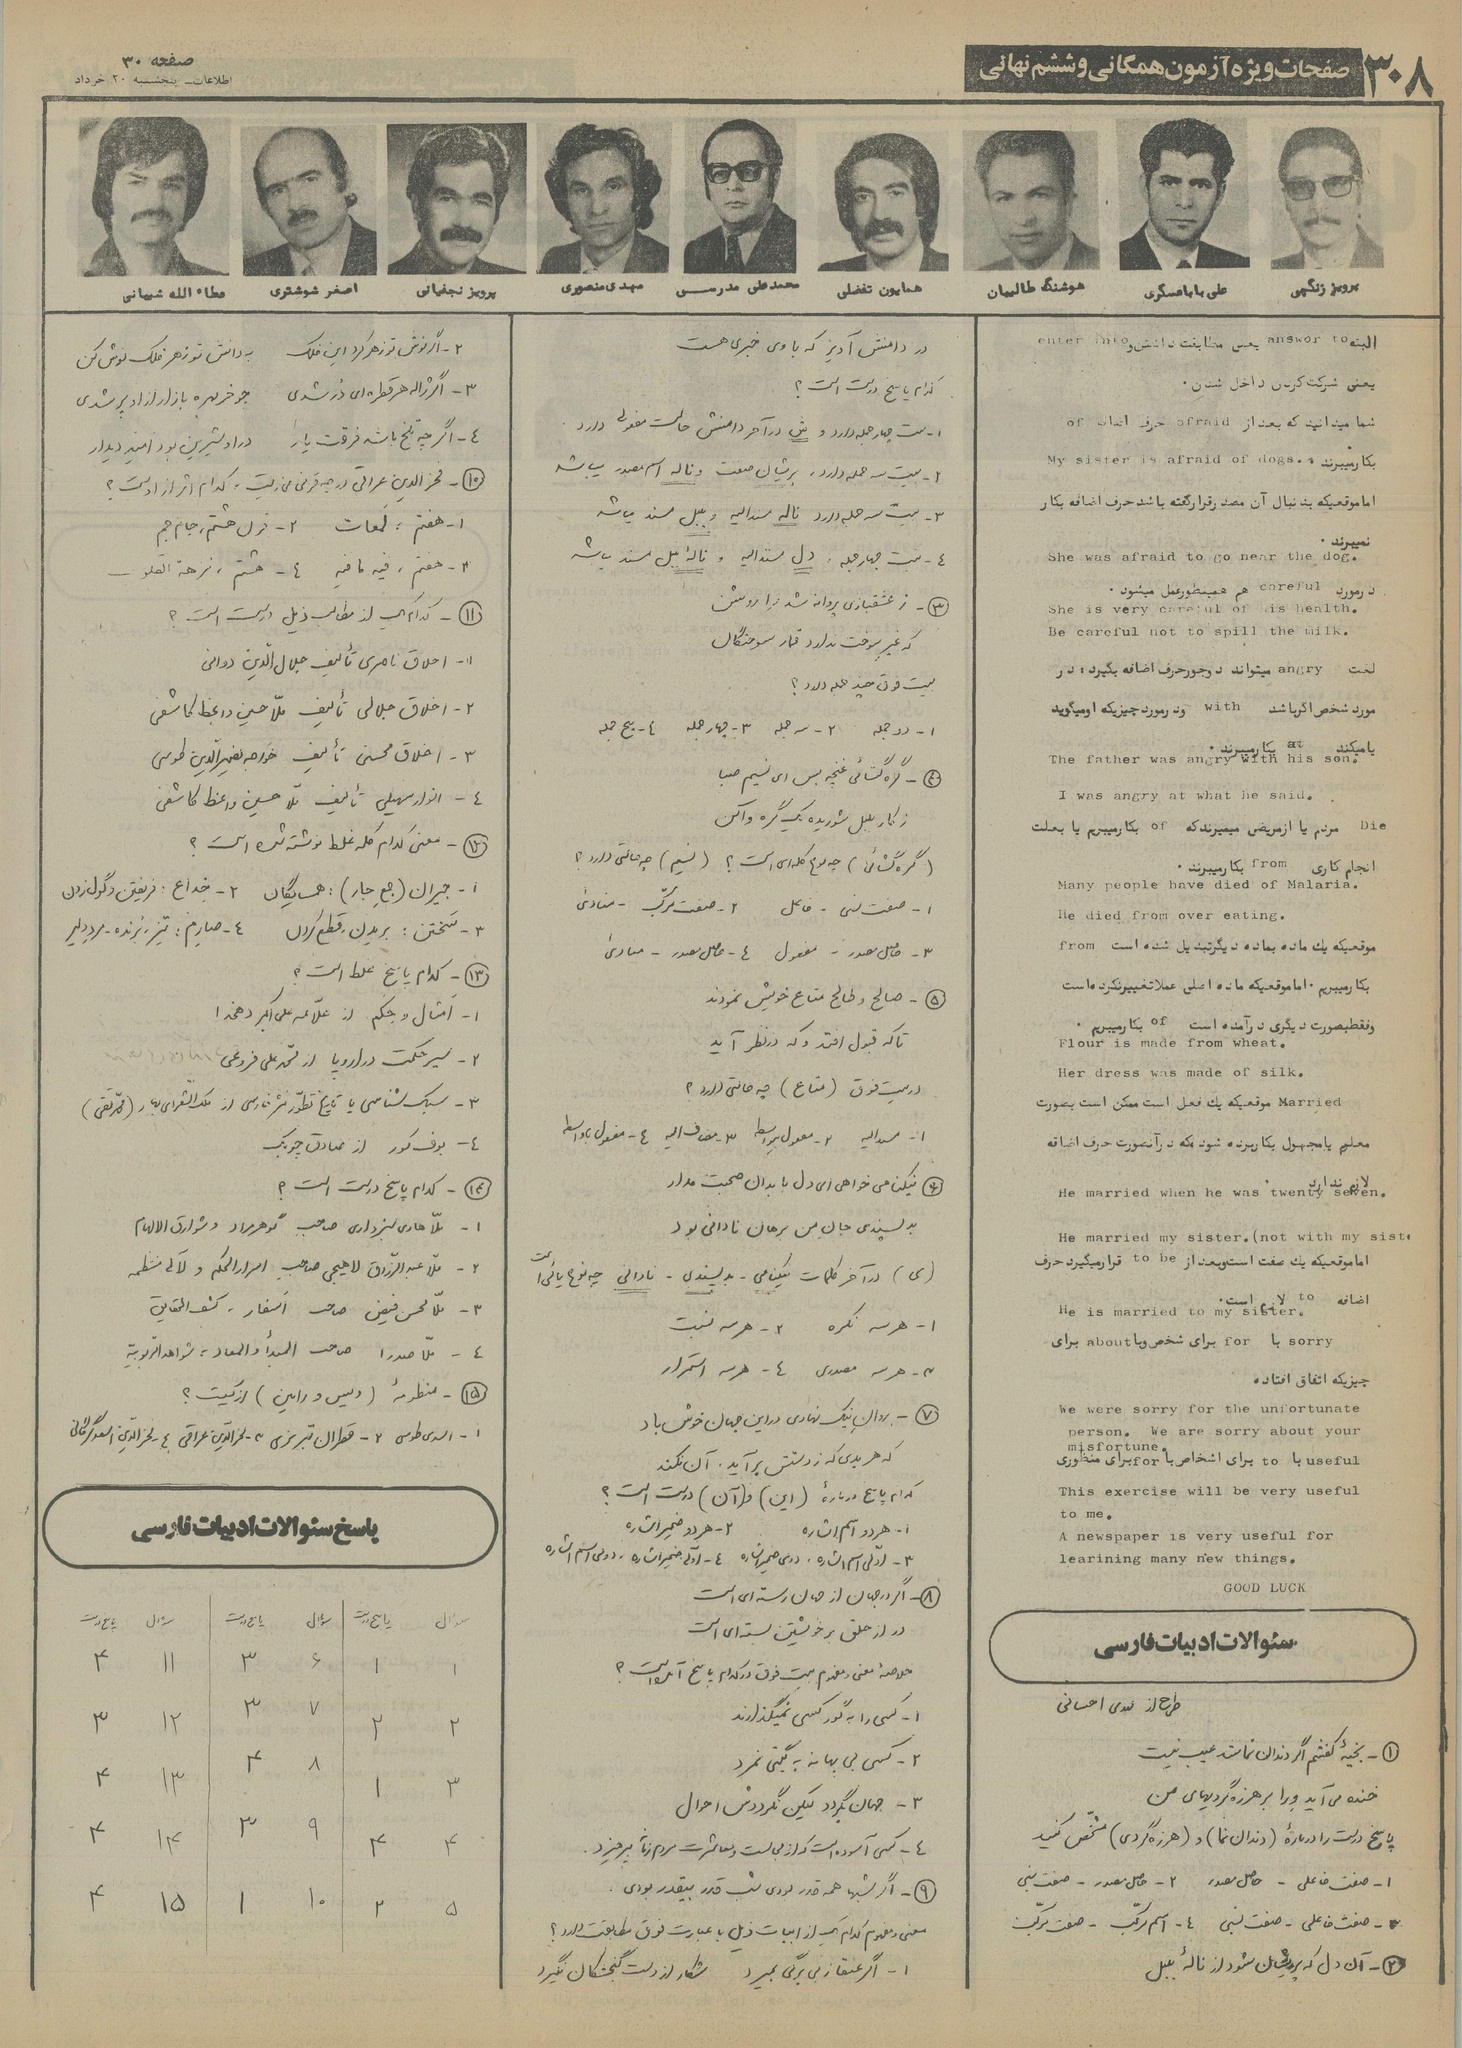 ۳۰۸
صفحات ویژه آزمون همگانی و ششم نهائی
صفحه ۳۰
اطلاعات ـ پنجشنبه ۲۰ خرداد
پرویز زنگهی
علی باباعسگری
هوشنگ طالبیان
همایون تفضلی
محمدعلی مدرسی
مهدی منصوری
پرویز نجفیانی
اصغر شوشتری
عطاء الله شیبانی
البته answor to یعنی مطابقت داشتن و enter into
یعنی شرکت کردن داخل شدن.
شما میدانید که بعد از afraid حرف اضافه of
بکار میبرند. My sister is afraid of dogs.
اما موقعیکه بدنبال آن مصدر قرار گفته باشد حرف اضافه بکار
نمیبرند.
She was afraid to go near the dog.
در مورد careful هم همینطور عمل میشود.
She is very careful of his health.
Be careful not to spill the milk.
لغت angry میتواند دوجور حرف اضافه بگیرد: در
مورد شخص اگر باشد with و در مورد چیزیکه او میگوید
یا میکند at بکار میبرند.
The father was angry with his son.
I was angry at what he said.
Die مردم یا از مریضی میمیرند که of بکار میبریم یا بعلت
انجام کاری from بکار میبرند.
Many people have died of Malaria.
He died from over eating.
موقعیکه یك ماده بماده دیگر تبدیل شده است from
بکار میبریم. اما موقعیکه ماده اصلی عملا تغییر نکرده است
و فقط بصورت دیگری درآمده است of بکار میبریم.
Flour is made from wheat.
Her dress was made of silk.
Married موقعیکه یك فعل است ممکن است بصورت
معلوم یا مجهول بکار برده شود که در آنصورت حرف اضافه
لازم ندارد.
He married when he was twenty seven.
He married my sister.(not with my siste
اما موقعیکه یك صفت است و بعد از to be قرار میگیرد حرف
اضافه to لازم است.
He is married to my sister.
sorry با for برای شخص و با about برای
چیزیکه اتفاق افتاده
We were sorry for the unfortunate
person. We are sorry about your
misfortune.
useful با to برای اشخاص با for برای منظوری
This exercise will be very useful
to me.
A newspaper is very useful for
learining many new things.
GOOD LUCK
سئوالات ادبیات فارسی
طرح از مهدی احسانی
۱ـ بخیهٔ کفشم اگر دندان نما شد عیب نیست
خنده می آید ورا بر هرزه گردیهای من
پاسخ درست را دربارهٔ (دندان نما) و (هرزه گردی) مشخّص کنید
۱- صفت فاعلی - حاصل مصدر ۲- حاصل مصدر - صفت نسبی
۳- صفت فاعلی - صفت نسبی ٤- اسم مرکّب - صفت مرکّب
۲ـ آن دل که پریشان شود از نالهٔ بلبل
در دامنش آویز که با وی خبری هست
کدام پاسخ درست است؟
۱- بیت چهار جمله دارد و ش در آخر دامنش حالت مفعولی دارد.
۲- بیت سه جمله دارد، پریشان صفت و ناله اسم مصدر میباشد
۳- بیت سه جمله دارد ناله مسندالیه و بلبل مسند میباشد
٤- بیت چهار جمله، دل مسندالیه و نالهٔ بلبل مسند میباشد
۳ـ ز عشقبازی پروانه شد مرا روشن
که غیر سوخت ندارد قمار سوختگان
بیت فوق چند جمله دارد؟
۱- دو جمله ۲- سه جمله ۳- چهار جمله ٤- پنج جمله
٤ـ گره گشائی غنچه بس ای نسیم صبا
ز کار بلبل شوریده یک گره واکن
(گره گشائی) چه نوع کلمه ای است؟ (نسیم) چه حالتی دارد؟
۱- صفت نسبی - فاعل ۲- صفت مرکّب - منادی
۳- حاصل مصدر - مفعول ٤- حاصل مصدر - منادی
۵ـ صالح و طالح متاع خویش نمودند
تا که قبول افتد و که در نظر آید
در بیت فوق (متاع) چه حالتی دارد؟
۱- مسندالیه ۲- مفعول بیواسطه ۳- مضاف الیه ٤- مفعول باواسطه
۶ـ نیکنامی خواهی ای دل با بدان صحبت مدار
بد پسندی جان من برهان نادانی بود
(ی) در آخر کلمات نیکنامی - بدپسندی - نادانی چه نوع یائی است
۱- هر سه نکره ۲- هر سه نسبت
۳- هر سه مصدری ٤- هر سه استمرار
۷ـ روان نیک نهادی در این جهان خوش باد
که هر بدی که ز دستش برآید، آن نکند
کدام پاسخ دربارهٔ (این) و (آن) درست است؟
۱- هر دو اسم اشاره ۲- هر دو ضمیر اشاره
۳- اوّلی اسم اشاره، دومی ضمیر اشاره ٤- اوّلی ضمیر اشاره، دومی اسم اشاره
۸ـ اگر در جهان از جهان رسته ای است
در از خلق بر خویشتن بسته ای است
خلاصهٔ معنی و مفهوم بیت فوق در کدام پاسخ آمده است؟
۱- کسی را به گور کسی نمیگذارند
۲- کسی بی بهانه به گیتی نمرد
۳- جهان بگردد لیکن نگرددش احوال
٤- کسی آسوده است که از مجالست و معاشرت مردم زمانه بپرهیزد.
۹ـ اگر شبها همه قدر بودی شب قدر بیقدر بودی.
معنی و مفهوم کدام یک از ابیات ذیل با عبارت فوق مطابقت دارد؟
۱- اگر عنقا ز بی برگی بمیرد شکار از دست گنجشکان نگیرد
۲- اگر نوش تو زهر کرد این فلک به دانش تو زهر فلک نوش کن
۳- اگر ژاله هر قطره ای دُر شدی چو خرمهره بازار از او پر شدی
٤- اگر چه تلخ باشد فرقت یار در او شیرین بود امّید دیدار
۱۰ـ فخرالدین عراقی در چه قرنی می زیست، کدام اثر از اوست؟
۱- هفتم، لَمَعات ۲- قرن هشتم، جام جم
۳- هفتم، فیه مافیه ٤- هشتم، نزهة القلوب
۱۱ـ کدام یک از مطالب ذیل درست است؟
۱- اخلاق ناصری تألیف جلال الدّین دوانی
۲- اخلاق جلالی تألیف ملّا حسین واعظ کاشفی
۳- اخلاق محسنی تألیف خواجه نصیرالدّین طوسی
٤- انوار سهیلی تألیف ملّا حسین واعظ کاشفی
۱۲ـ معنی کدام کلمه غلط نوشته شده است؟
۱- جیران (جمع جار): همسایگان ۲- خِداع: فریفتن و گول زدن
۳- سَختن: بریدن، قطع کردن ٤- صارِم: تیز، بُرنده - مرد دلیر
۱۳ـ کدام پاسخ غلط است؟
۱- اَمثال و حِکَم از علّامه علی اکبر دهخدا
۲- سیر حکمت در اروپا از محمّد علی فروغی
۳- سبک شناسی یا تاریخ تطوّر نثر فارسی از ملک الشّعرای بهار (محمّد تقی)
٤- بوف کور از صادق چوبک
۱٤ـ کدام پاسخ درست است؟
۱- ملّا هادی سبزواری صاحب گوهر مراد و شوارق الالهام
۲- ملّا عبدالرّزاق لاهیجی صاحب اسرارالحکم و لآلی منتظمه
۳- ملّا محسن فیض صاحب اَسفار، کشف الحقایق
٤- ملّا صدرا صاحب المبدأ و المعاد، شواهد الرّبوبیّة
۱۵ـ منظومهٔ (ویس و رامین) از کیست؟
۱- اسدی طوسی ۲- قطران تبریزی ۳- فخرالدّین عراقی ٤- فخرالدّین اسعد گرگانی
پاسخ سئوالات ادبیات فارسی
سؤال پاسخ درست سؤال پاسخ درست سؤال پاسخ درست
۱ ۱ ۶ ۳ ۱۱ ۴
۲ ۲ ۷ ۳ ۱۲ ۳
۳ ۱ ۸ ۴ ۱۳ ۴
۴ ۴ ۹ ۳ ۱۴ ۴
۵ ۲ ۱۰ ۱ ۱۵ ۴